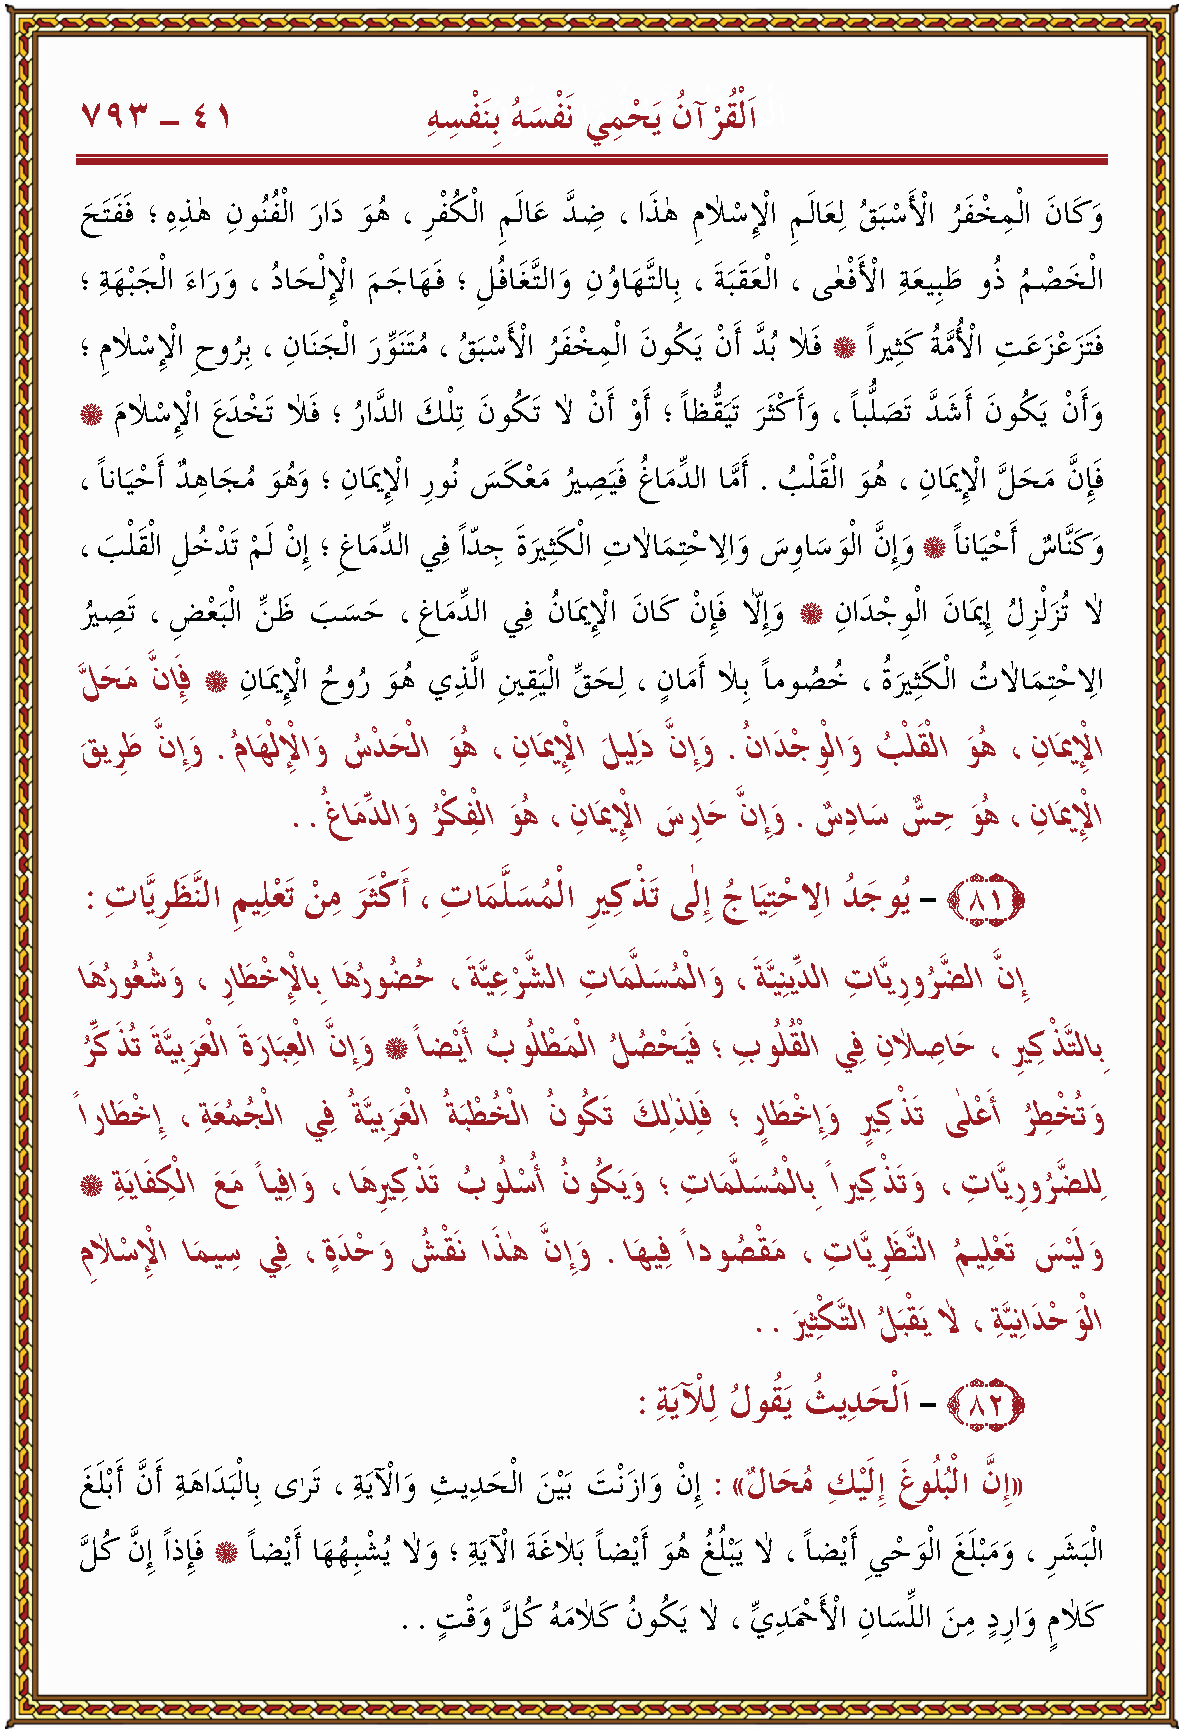 اَلْقُرْآنُ يَحْمِي نَفْسَهُ بِنَفْسِهِ ٤١ – ٧٩٣
وَكَانَ الْمِخْفَرُ الْأَسْبَقُ لِعَالَمِ الْإِسْلَامِ هٰذَا ، ضِدَّ عَالَمِ الْكُفْرِ ، هُوَ دَارَ الْفُنُونِ هٰذِهِ ؛ فَفَتَحَ
الْخَصْمُ ذُو طَبِيعَةِ الْأَفْعٰى ، الْعَقَبَةَ ، بِالتَّهَاوُنِ وَالتَّغَافُلِ ؛ فَهَاجَمَ الْإِلْحَادُ ، وَرَاءَ الْجَبْهَةِ ؛
فَتَزَعْزَعَتِ الْأُمَّةُ كَثِيراً ۞ فَلَا بُدَّ أَنْ يَكُونَ الْمِخْفَرُ الْأَسْبَقُ ، مُتَنَوِّرَ الْجَنَانِ ، بِرُوحِ الْإِسْلَامِ ؛
وَأَنْ يَكُونَ أَشَدَّ تَصَلُّباً ، وَأَكْثَرَ تَيَقُّظاً ؛ أَوْ أَنْ لَا تَكُونَ تِلْكَ الدَّارُ ؛ فَلَا تَخْدَعَ الْإِسْلَامَ ۞
فَإِنَّ مَحَلَّ الْإِيمَانِ ، هُوَ الْقَلْبُ . أَمَّا الدِّمَاغُ فَيَصِيرُ مَعْكَسَ نُورِ الْإِيمَانِ ؛ وَهُوَ مُجَاهِدٌ أَحْيَاناً ،
وَكَنَّاسٌ أَحْيَاناً ۞ وَإِنَّ الْوَسَاوِسَ وَالِاحْتِمَالَاتِ الْكَثِيرَةَ جِدّاً فِي الدِّمَاغِ ؛ إِنْ لَمْ تَدْخُلِ الْقَلْبَ ،
لَا تُزَلْزِلُ إِيمَانَ الْوِجْدَانِ ۞ وَإِلَّا فَإِنْ كَانَ الْإِيمَانُ فِي الدِّمَاغِ ، حَسَبَ ظَنِّ الْبَعْضِ ، تَصِيرُ
الِاحْتِمَالَاتُ الْكَثِيرَةُ ، خُصُوماً بِلَا أَمَانٍ ، لِحَقِّ الْيَقِينِ الَّذِي هُوَ رُوحُ الْإِيمَانِ ۞ فَإِنَّ مَحَلَّ
الْإِيمَانِ ، هُوَ الْقَلْبُ وَالْوِجْدَانُ . وَإِنَّ دَلِيلَ الْإِيمَانِ ، هُوَ الْحَدْسُ وَالْإِلْهَامُ . وَإِنَّ طَرِيقَ
الْإِيمَانِ ، هُوَ حِسٌّ سَادِسٌ . وَإِنَّ حَارِسَ الْإِيمَانِ ، هُوَ الْفِكْرُ وَالدِّمَاغُ . .
﴿٨١﴾ – يُوجَدُ الِاحْتِيَاجُ إِلٰى تَذْكِيرِ الْمُسَلَّمَاتِ ، أَكْثَرَ مِنْ تَعْلِيمِ النَّظَرِيَّاتِ :
إِنَّ الضَّرُورِيَّاتِ الدِّينِيَّةَ ، وَالْمُسَلَّمَاتِ الشَّرْعِيَّةَ ، حُضُورُهَا بِالْإِخْطَارِ ، وَشُعُورُهَا
بِالتَّذْكِيرِ ، حَاصِلَانِ فِي الْقُلُوبِ ؛ فَيَحْصُلُ الْمَطْلُوبُ أَيْضاً ۞ وَإِنَّ الْعِبَارَةَ الْعَرَبِيَّةَ تُذَكِّرُ
وَتُخْطِرُ أَعْلٰى تَذْكِيرٍ وَإِخْطَارٍ ؛ فَلِذٰلِكَ تَكُونُ الْخُطْبَةُ الْعَرَبِيَّةُ فِي الْجُمُعَةِ ، إِخْطَاراً
لِلضَّرُورِيَّاتِ ، وَتَذْكِيراً بِالْمُسَلَّمَاتِ ؛ وَيَكُونُ أُسْلُوبُ تَذْكِيرِهَا ، وَافِياً مَعَ الْكِفَايَةِ ۞
وَلَيْسَ تَعْلِيمُ النَّظَرِيَّاتِ ، مَقْصُوداً فِيهَا . وَإِنَّ هٰذَا نَقْشُ وَحْدَةٍ ، فِي سِيمَا الْإِسْلَامِ
الْوَحْدَانِيَّةِ ، لَا يَقْبَلُ التَّكْثِيرَ . .
﴿٨٢﴾ – اَلْحَدِيثُ يَقُولُ لِلْآيَةِ :
«إِنَّ الْبُلُوغَ إِلَيْكِ مُحَالٌ» : إِنْ وَازَنْتَ بَيْنَ الْحَدِيثِ وَالْآيَةِ ، تَرٰى بِالْبَدَاهَةِ أَنَّ أَبْلَغَ
الْبَشَرِ ، وَمَبْلَغَ الْوَحْيِ أَيْضاً ، لَا يَبْلُغُ هُوَ أَيْضاً بَلَاغَةَ الْآيَةِ ؛ وَلَا يُشْبِهُهَا أَيْضاً ۞ فَإِذاً إِنَّ كُلَّ
كَلَامٍ وَارِدٍ مِنَ اللِّسَانِ الْأَحْمَدِيِّ ، لَا يَكُونُ كَلَامَهُ كُلَّ وَقْتٍ . .